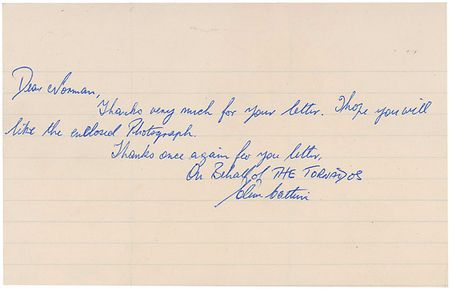 Dear Norman,
Thanks very much for your letter. I hope you will
like the enclosed Photograph.
Thanks once again for you letter.
On Behalf of THE TORNADOS